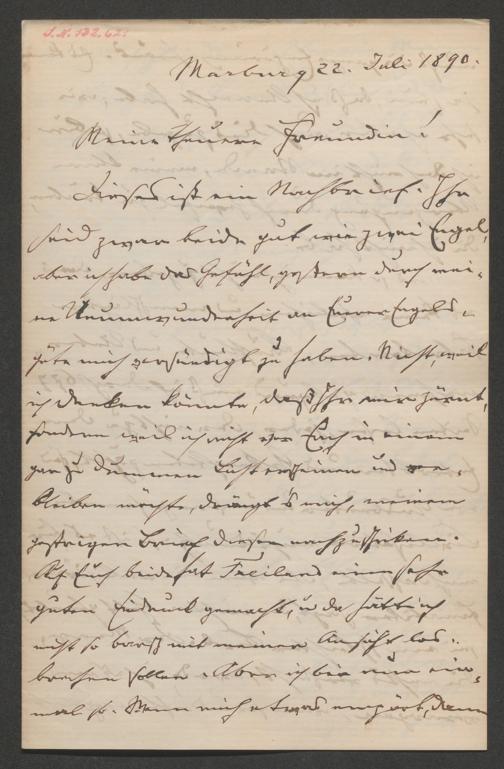 Marburg 22. Juli 1890.
Meine theuere Freundin!
Dieses ist ein Nachbrief. Ihr
seid zwar beide gut, wie zwei Engel,
aber ich habe das Gefühl, gestern durch mei-
ne Unumwundenheit an Eurer Engels-
güte mich versündigt zu haben. Nicht, weil
ich denken könnte, daß Ihr mir zürnt,
sondern weil ich nicht vor Euch in einem
gar zu dummen Licht erscheinen und
bleiben möchte, drängt's mich, meinem
gestrigen Brief diesen nachzuschicken.
Auf Euch beide hat einen sehr
guten Eindruck gemacht, u. da hätt ich
nicht so barsch mit meiner Ansicht los-
brechen sollen. Aber ich bin nun ein-
mal so. Wenn mich etwas empört, dann